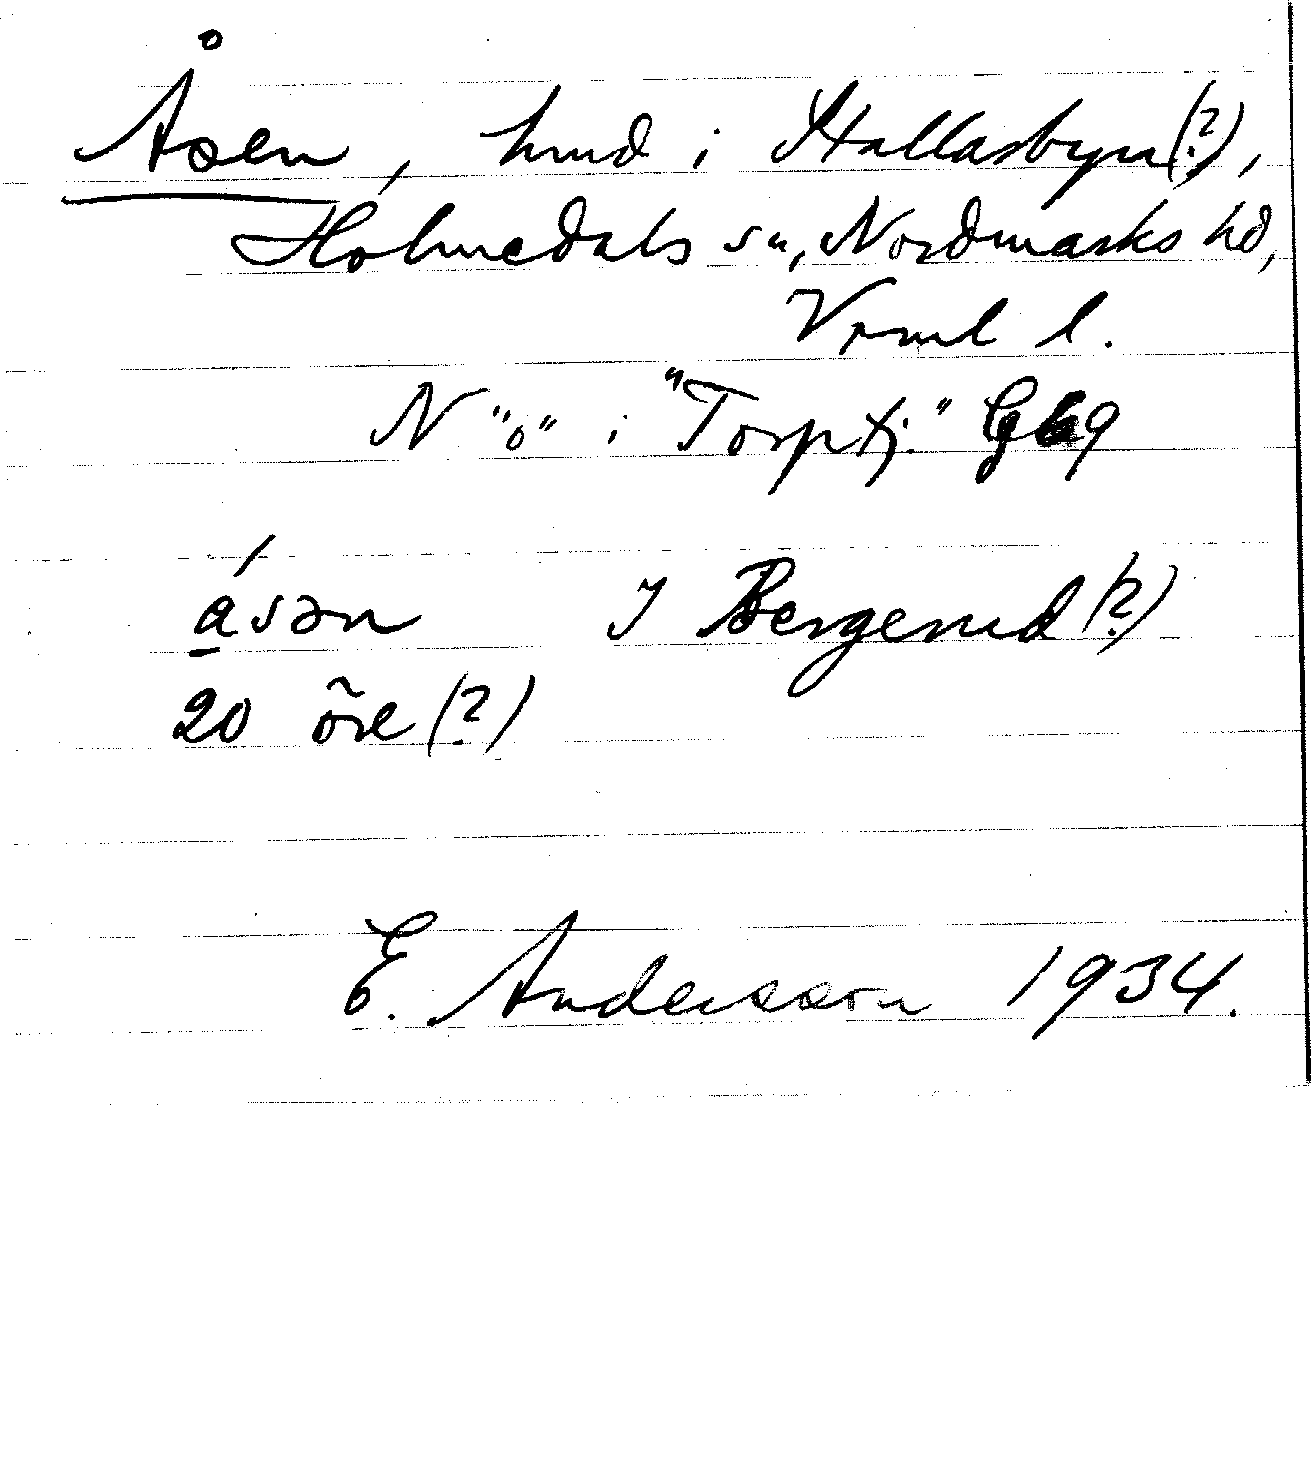 Åsen, hmd i Stallarbyn(?),
Holmedals sn, Nordmarks hd,
Vrml l.
N "o" i "Torptj." Gb9
åsən I Bergerud(?)
20 öre(?)
E. Andersson 1934.